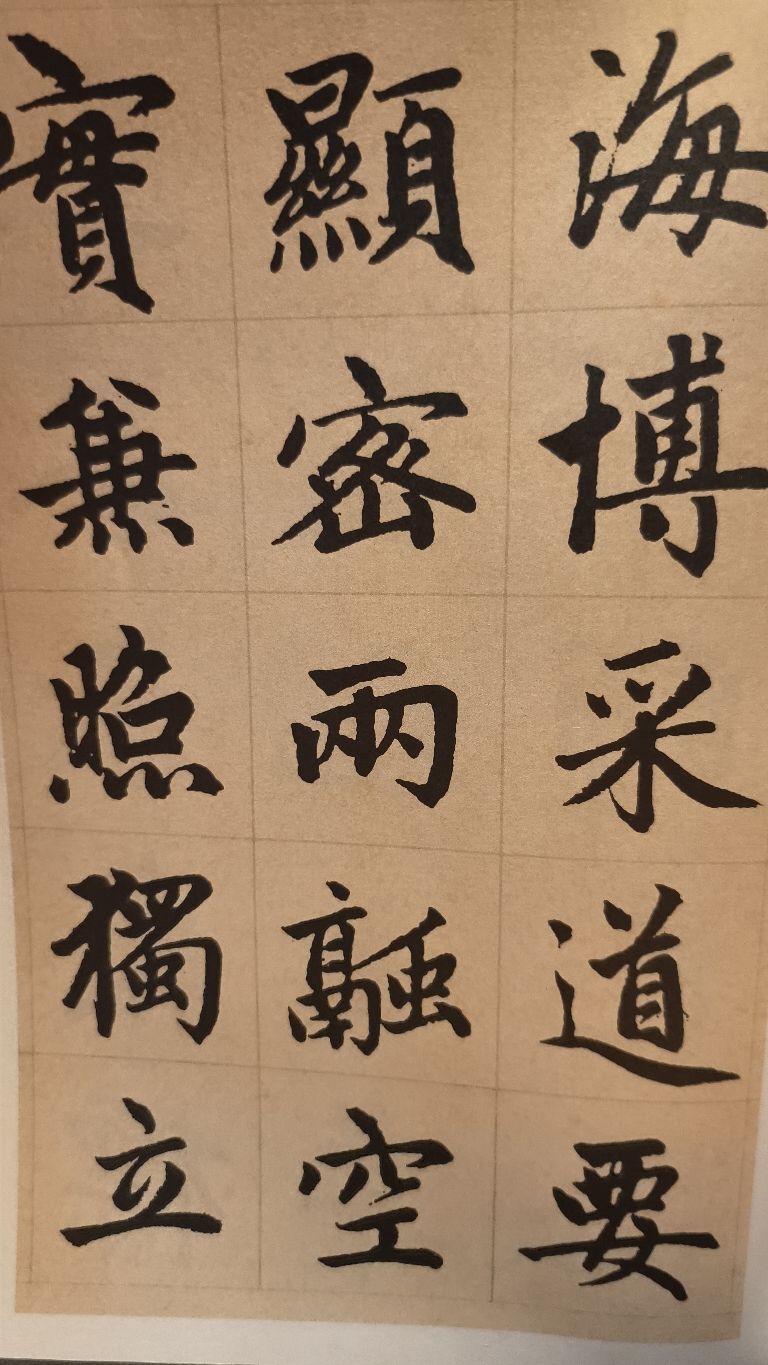 海博采道要
顯密兩融空
實兼照獨立